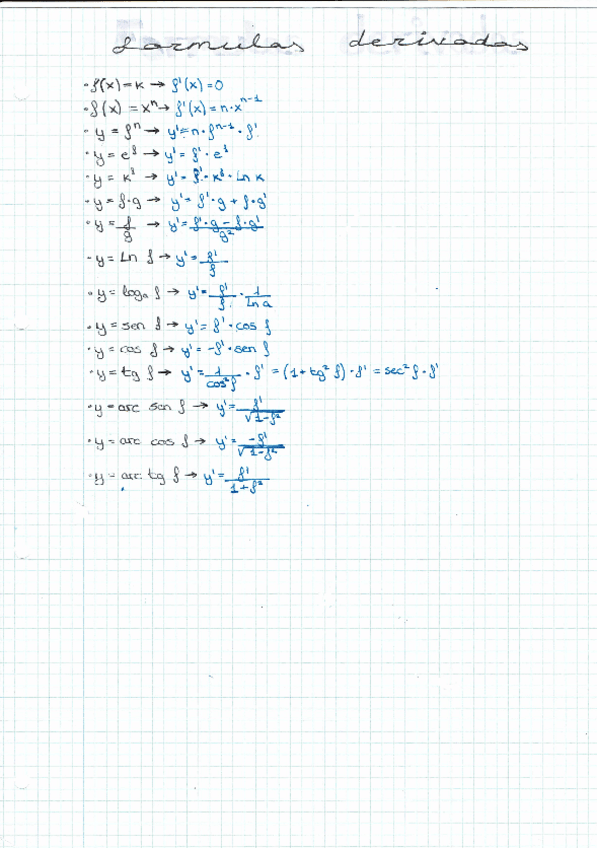 formulas derivadas
· f(x) = k → f'(x) = 0
· f(x) = xⁿ → f'(x) = n · xⁿ⁻¹
· y = fⁿ → y' = n · fⁿ⁻¹ · f'
· y = e^f → y' = f' · e^f
· y = k^f → y' = f' · k^f · Ln k
· y = f · g → y' = f' · g + f · g'
· y = f/g → y' = (f' · g - f · g')/g²
· y = Ln f → y' = f'/f
· y = logₐ f → y' = f'/f · 1/Ln a
· y = sen f → y' = f' · cos f
· y = cos f → y' = -f' · sen f
· y = tg f → y' = 1/cos² f · f' = (1 + tg² f) · f' = sec² f · f'
· y = arc sen f → y' = f'/√(1-f²)
· y = arc cos f → y' = -f'/√(1-f²)
· y = arc tg f → y' = f'/(1+f²)